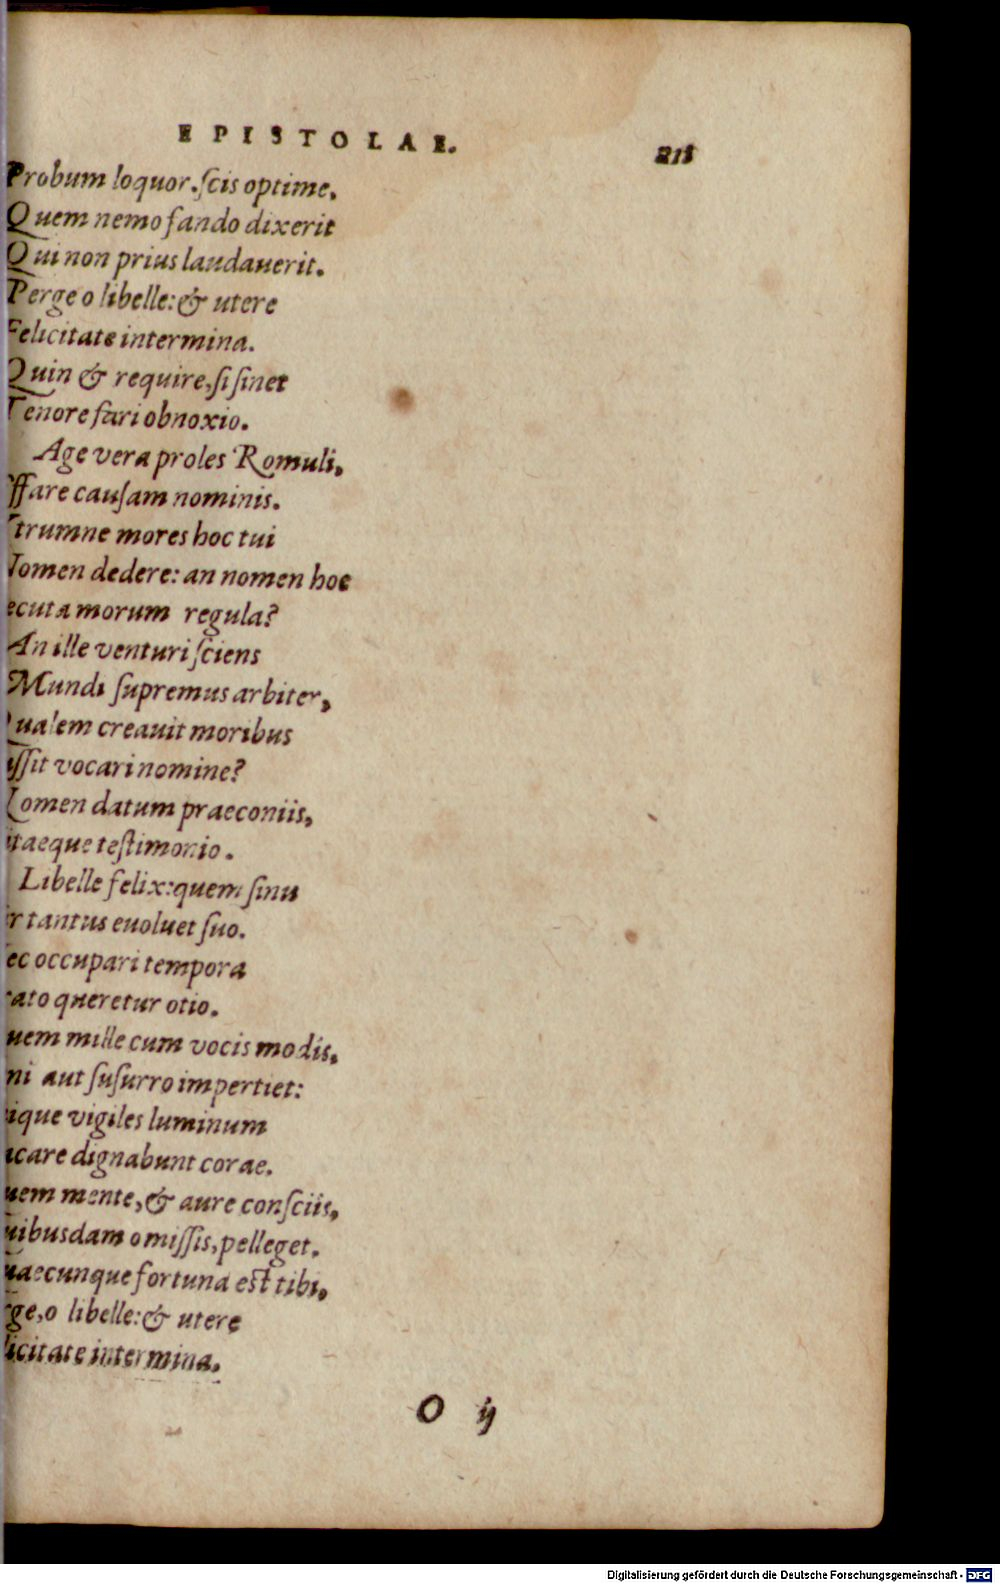 EPISTOLAE. 211
Probum loquor. scis optime,
Quem nemo fando dixerit
Qui non prius laudauerit.
Perge o libelle: & utere
Felicitate intermina.
Quin & require, si sinet
Tenore fari obnoxio.
Age vera proles Romuli,
ffare causam nominis.
trumne mores hoc tui
Nomen dedere: an nomen hoc
ecuta morum regula?
An ille venturi sciens
Mundi supremus arbiter,
Qualem creauit moribus
ussit vocari nomine?
Nomen datum praeconiis,
itaeque testimonio.
Libelle felix: quem sinu
ir tantus euoluet suo.
ec occupari tempora
rato queretur otio.
uem mille cum vocis modis,
ni aut susurro impertiet:
ique vigiles luminum
acare dignabunt corae.
uem mente, & aure consciis,
uibusdam omissis, pelleget.
uaecunque fortuna est tibi,
rge, o libelle: & utere
licitate intermina.
O ij
Digitalisierung gefördert durch die Deutsche Forschungsgemeinschaft - DFG